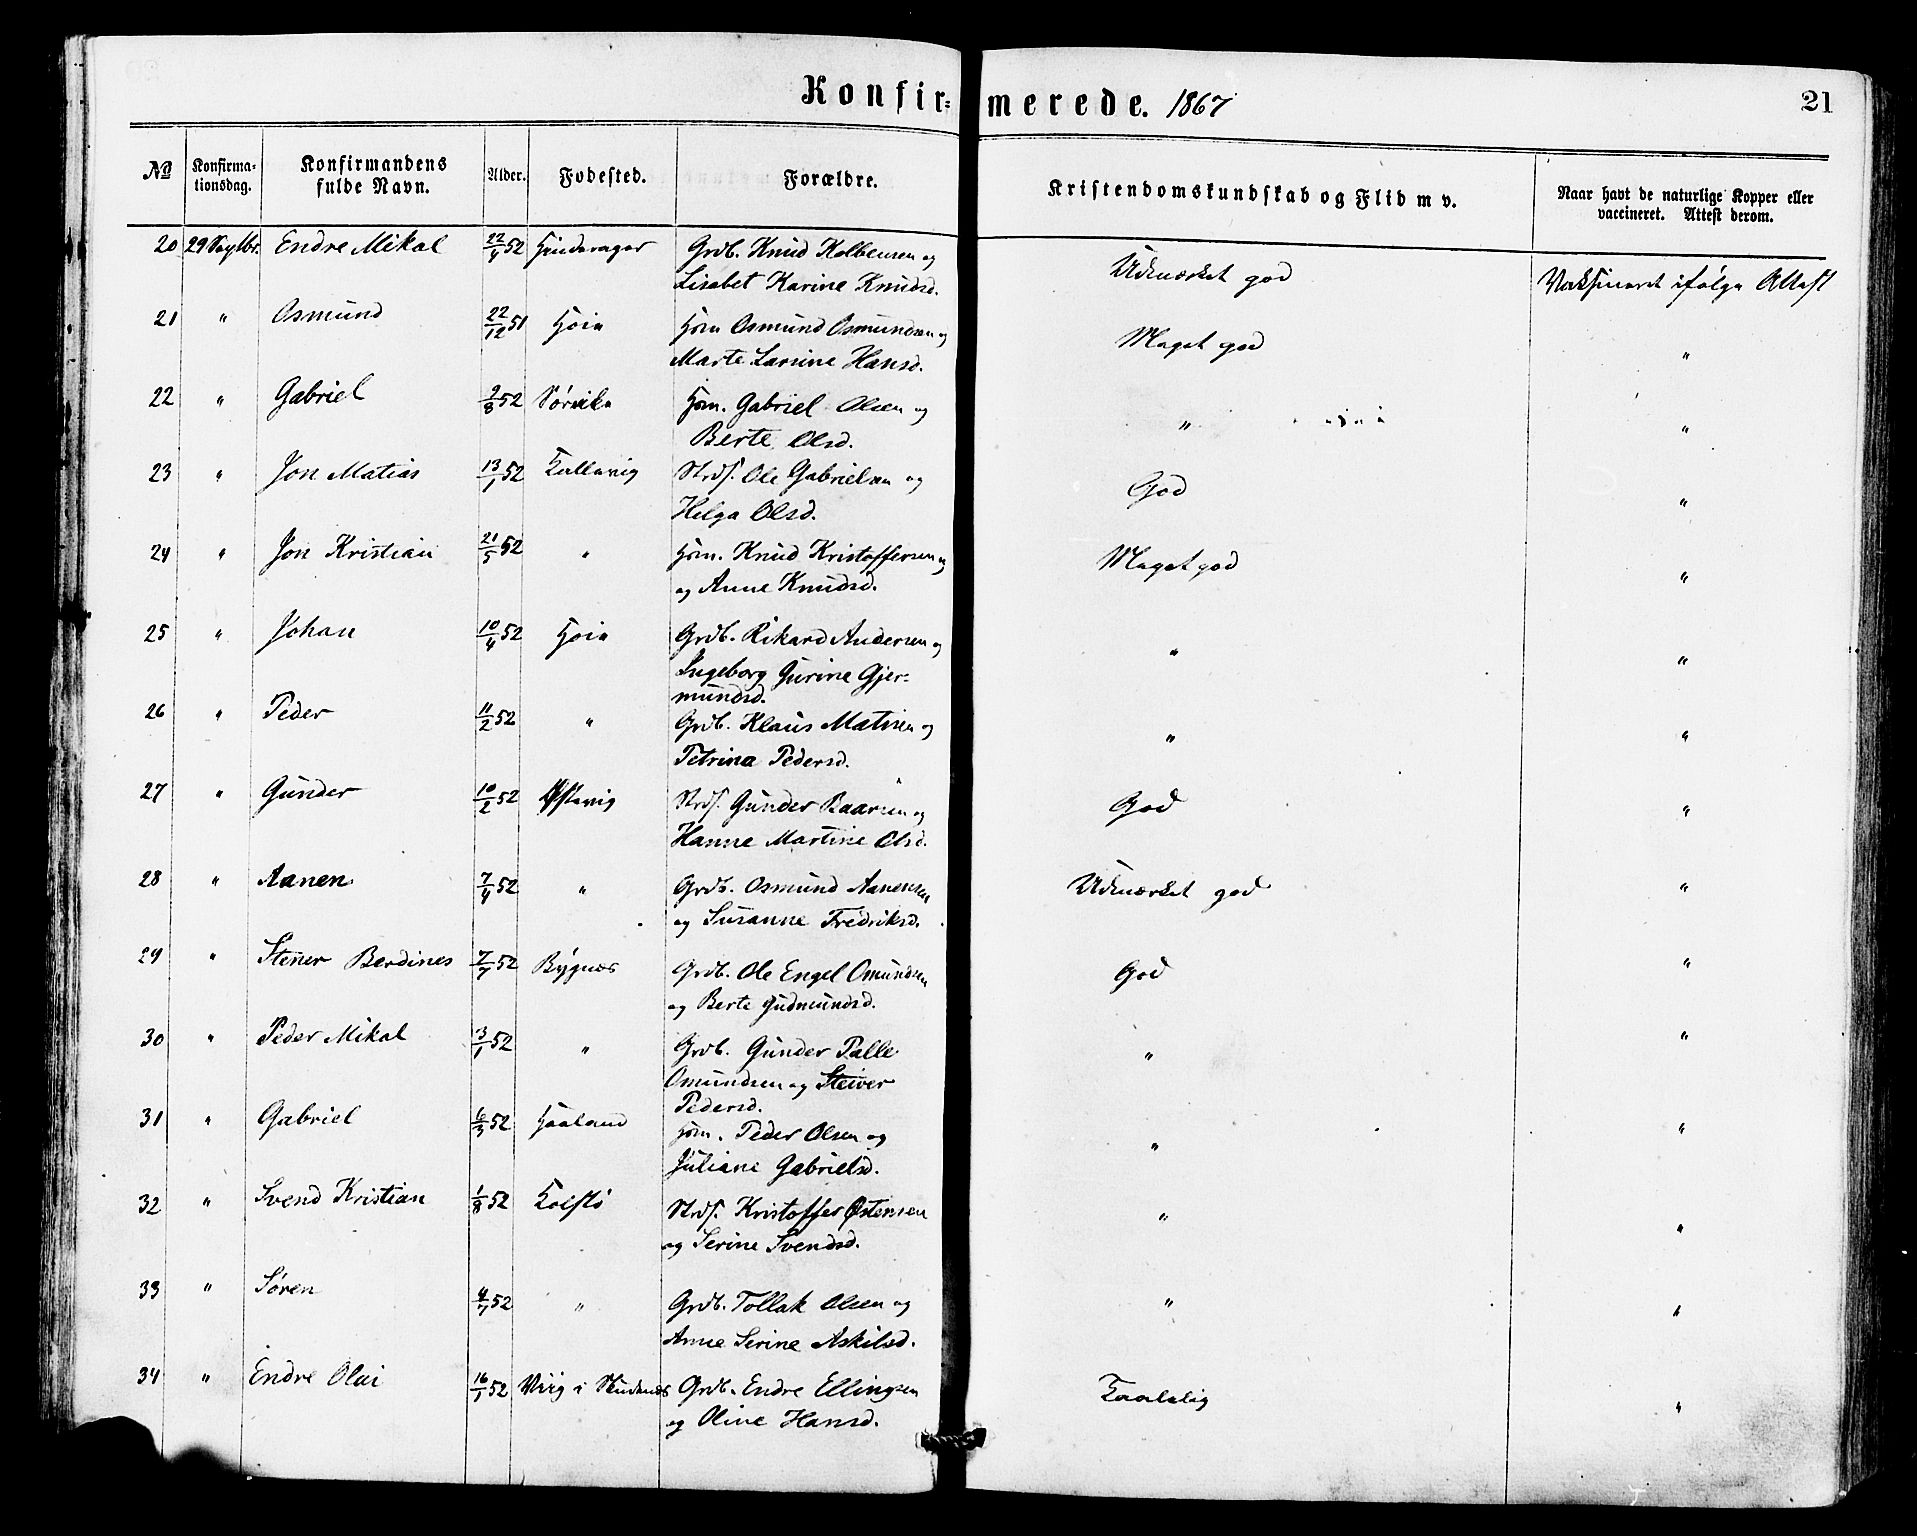 Konfirmerede. 1867
21
№ Konfirmationsdag. Konfirmandens fulde Navn. Alder. Fødested. Forældre. Kristendomskundskab og Flid m v. Naar havt de naturlige Kopper eller vaccineret. Attest derom.
20 29 Endre Mikal 22/4 52 Grdb. Knud Kolbensen og Udmærket god Vaksineret ifølge Attest
Lisabet Karine Knudsd.
21 " Osmund 22/12 51 Høie Hsm Osmund Osmundsen og Meget god "
Marte Larsine Hansd.
22 " Gabriel 9/8 52 Sørvik Hsm. Gabriel Olsen og " "
Berte Olsd.
23 " Jon Matias 13/1 52 Strds. Ole Gabrielsen og God "
Helga Olsd.
24 " Jon Kristian 21/5 52 " Hsm. Knud Kristoffersen og Meget god "
og Anne Knudsd.
25 " Johan 10/4 52 Høie Grdb. Rikard Andersen og " "
Ingeborg Gurine Gjer=
mundsd.
26 " Peder 11/2 52 " Grdb. Klaus Matisen og " "
Petrina Pedersd.
27 " Gunder 10/2 52 Strds. Gunder Baarsen og God "
Hanne Martine Olsd.
28 " Aanen 7/4 52 " Grdb. Osmund Aanensen Udmærket god "
og Susanne Fredriksd.
29 " Stener Berdines 7/7 52 Bygnes Grdb. Ole Engel Omundsen God "
og Berte Gudmundsd.
30 " Peder Mikal 13/1 52 " Grdb. Gunder Palle " "
Omundsen og
Pedersd.
31 " Gabriel 6/3 52 Haaland Hsm. Peder Olsen og " "
Juliane Gabrielsd.
32 " Svend Kristian 1/8 52 Kolstø Strds. Kristoffer Østensen " "
og Serine Svendsd.
33 " Søren 4/7 52 " Grdb. Tollak Olsen og " "
Anne Serine Askilsd.
34 " Endre Olai 16/1 52 i Skudenes Grdb. Endre Ellingsen Taalelig "
og Oline Hansd.